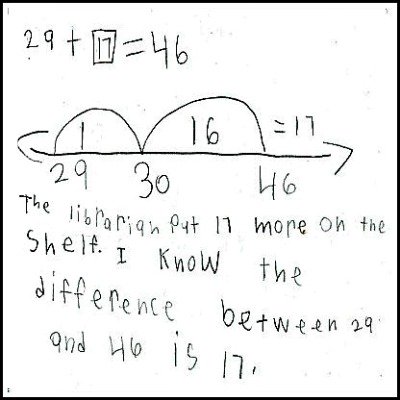 29 + 17 = 46
1 16 = 17
29 30 46
The librarian put 17 more on the
shelf. I know the
difference between 29
and 46 is 17.